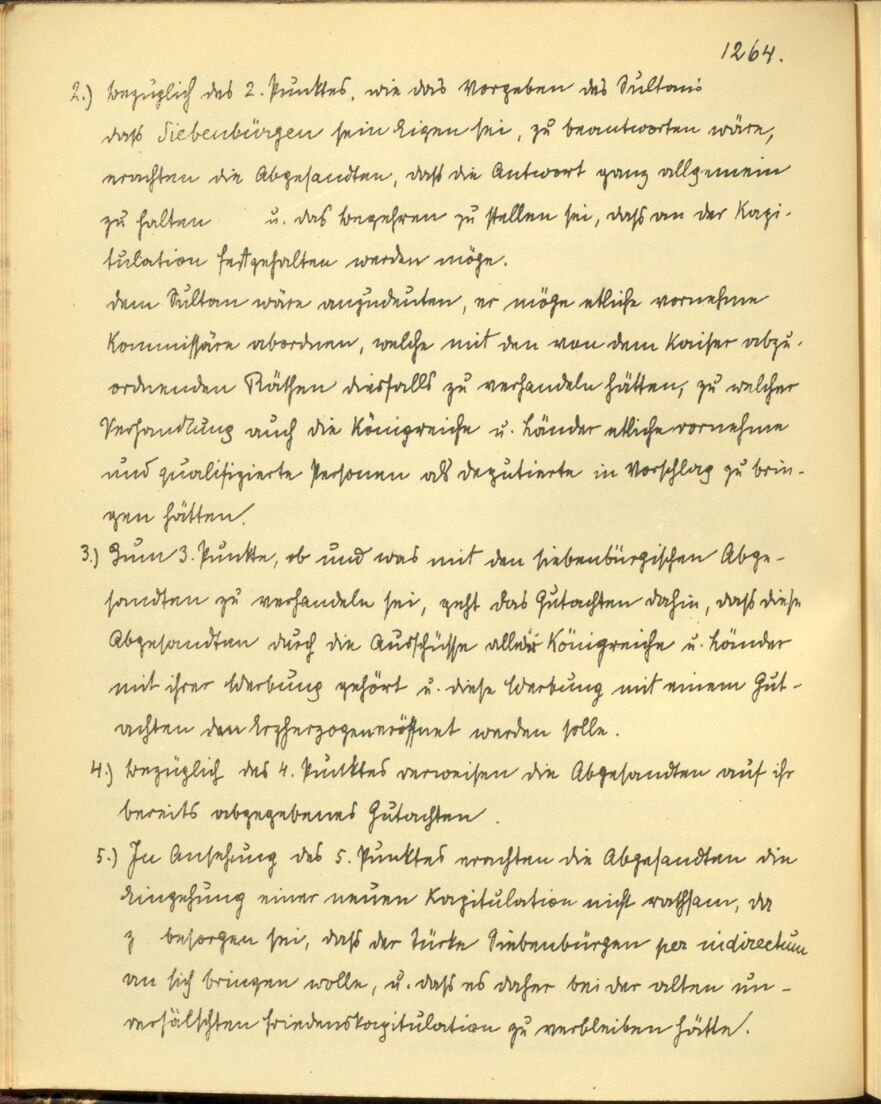 1264.
2.) bezüglich des 2. Punktes, wie das Vorgeben des Sultans
daß Siebenbürgen sein Eigen sei, zu beantworten wäre,
erachten die Abgesandten, daß die Antwort ganz allgemein
zu halten u. das Begehren zu stellen sei, daß an der Kapi-
tulation festgehalten werden möge.
dem Sultan wäre anzudeuten, er möge etliche vornehme
Kommissäre abordnen, welche mit den von dem Kaiser abzu-
ordnenden Räthen diesfalls zu verhandeln hätten, zu welcher
Verhandlung auch die Königreiche u. Länder etliche vornehme
und qualifizierte Personen als deputierte in Vorschlag zu brin-
gen hätten.
3.) Zum 3. Punkte, ob und was mit den siebenbürgischen Abge-
sandten zu verhandeln sei, geht das Gutachten dahin, daß diese
Abgesandten durch die Ausschüsse aller Königreiche u. Länder
mit ihrer Werbung gehört u. diese Werbung mit einem Gut-
achten den Erzherzogen eröffnet werden solle.
4.) bezüglich des 4. Punktes verweisen die Abgesandten auf ihr
bereits abgegebenes Gutachten.
5.) In Ansehung des 5. Punktes erachten die Abgesandten die
Eingehung einer neuen Kapitulation nicht rathsam, da
z besorgen sei, daß der Türke Siebenbürgen per indirectum
an sich bringen wolle, u. daß es daher bei der alten un-
verfälschten Friedenskapitulation zu verbleiben hätte.